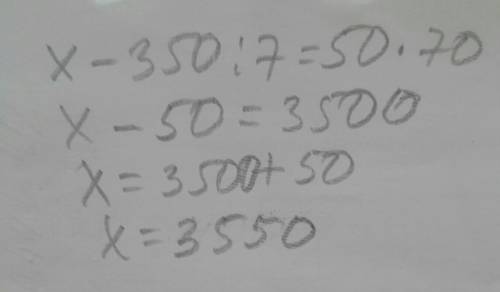 x - 350 : 7 = 50 · 70
x - 50 = 3500
x = 3500 + 50
x = 3550